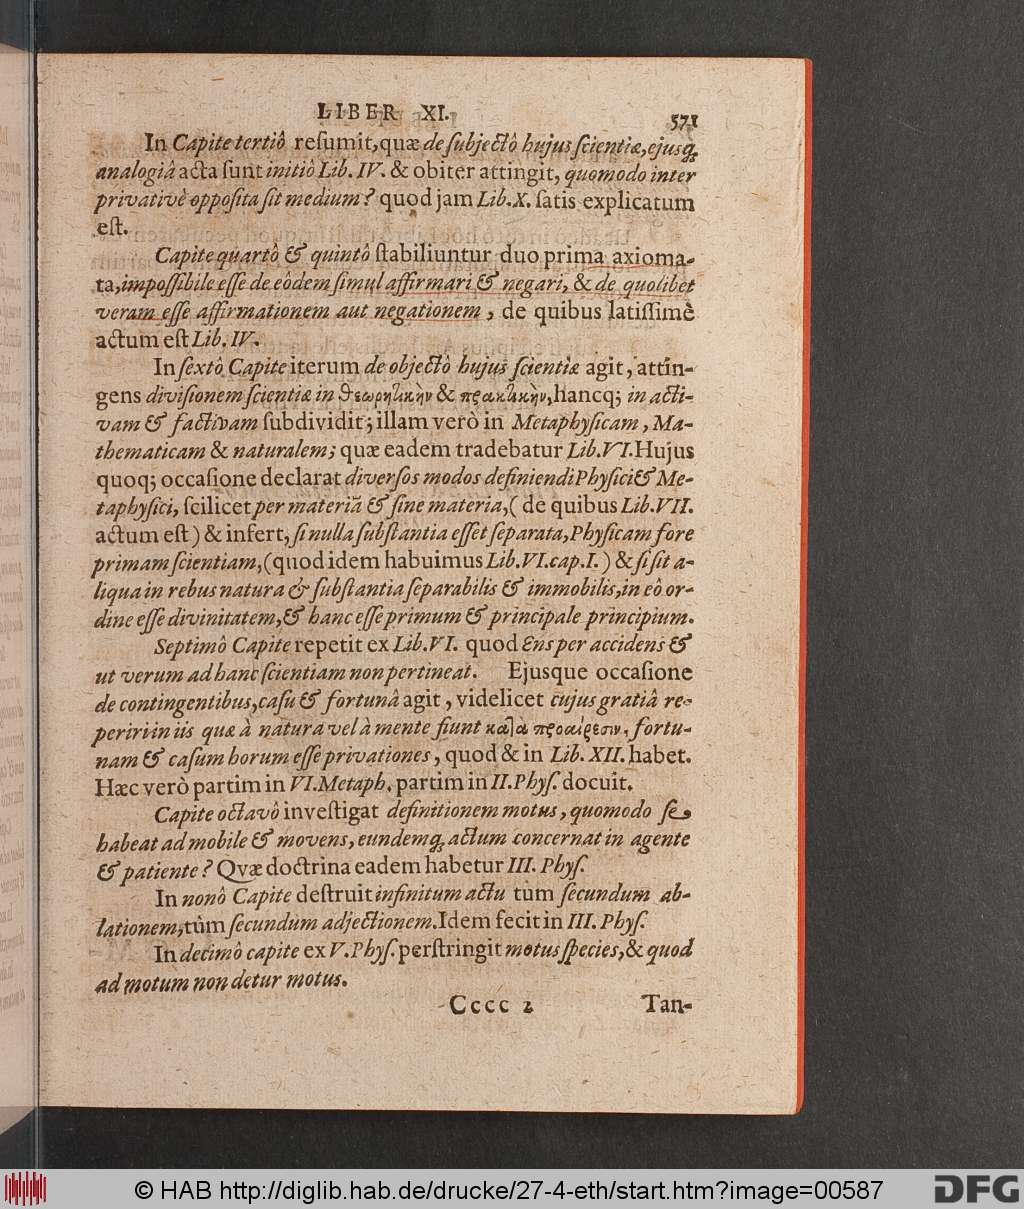 LIBER XI. 571
In Capite tertiô resumit, quæ de subjectô hujus scientiæ, ejusq;
analogiâ acta sunt initiô Lib. IV. & obiter attingit, quomodo inter
privativè opposita sit medium? quod jam Lib. X. satis explicatum
est.
Capite quartô & quintô stabiliuntur duo prima axioma-
ta, impossibile esse de eôdem simul affirmari & negari, & de quolibet
veram esse affirmationem aut negationem, de quibus latissimè
actum est Lib. IV.
In sextô Capite iterum de objectô hujus scientiæ agit, attin-
gens divisionem scientiæ in θεωρητικὴν & πρακτικὴν, hancq; in acti-
vam & factivam subdividit; illam verò in Metaphysicam, Ma-
thematicam & naturalem; quæ eadem tradebatur Lib. VI. Hujus
quoq; occasione declarat diversos modos definiendi Physici & Me-
taphysici, scilicet per materiã & sine materia, (de quibus Lib. VII.
actum est) & infert, si nulla substantia esset separata, Physicam fore
primam scientiam, (quod idem habuimus Lib. VI. cap. I.) & si sit a-
liqua in rebus natura & substantia separabilis & immobilis, in eô or-
dine esse divinitatem, & hanc esse primum & principale principium.
Septimô Capite repetit ex Lib. VI. quod Ens per accidens &
ut verum ad hanc scientiam non pertineat. Ejusque occasione
de contingentibus, casu & fortunâ agit, videlicet cujus gratiâ re-
periri in iis quæ à natura vel à mente fiunt κατὰ προαίρεσιν, fortu-
nam & casum horum esse privationes, quod & in Lib. XII. habet.
Hæc verò partim in VI. Metaph. partim in II. Phys. docuit.
Capite octavô investigat definitionem motus, quomodo se
habeat ad mobile & movens, eundemq; actum concernat in agente
& patiente? Qvæ doctrina eadem habetur III. Phys.
In nonô Capite destruit infinitum actu tùm secundum ab-
lationem, tùm secundum adjectionem. Idem fecit in III. Phys.
In decimô capite ex V. Phys. perstringit motus species, & quod
ad motum non detur motus.
Cccc 2 Tan-
© HAB http://diglib.hab.de/drucke/27-4-eth/start.htm?image=00587 DFG